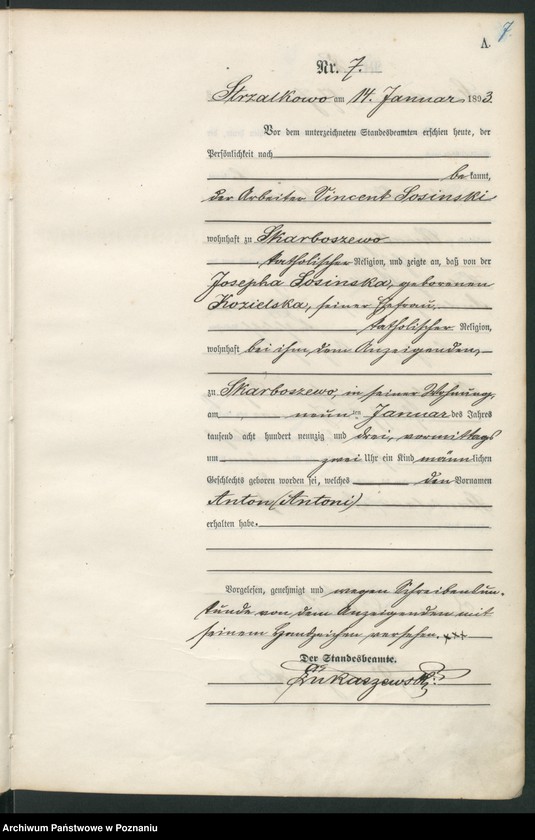 7
A.
Nr. 7.
Strzalkowo am 14. Januar 1893.
Vor dem unterzeichneten Standesbeamten erschien heute, der
Persönlichkeit nach
bekannt,
der Arbeiter Vincent Sosinski
wohnhaft zu Skarboszewo
katholischer Religion, und zeigte an, daß von der
Josepha Sosinska, geborenen
Kozielska, seiner Ehefrau,
katholischer Religion,
wohnhaft bei ihm, dem Anzeigenden,
zu Skarboszewo, in seiner Wohnung,
am neunten Januar des Jahres
tausend acht hundert neunzig und drei, vormittags
um zwei Uhr ein Kind männlichen
Geschlechts geboren worden sei, welches den Vornamen
Anton (Antoni)
erhalten habe.
Vorgelesen, genehmigt und wegen Schreibensun-
kunde von dem Anzeigenden mit
seinem Handzeichen versehen. +++
Der Standesbeamte.
Łukaszewski
Archiwum Państwowe w Poznaniu